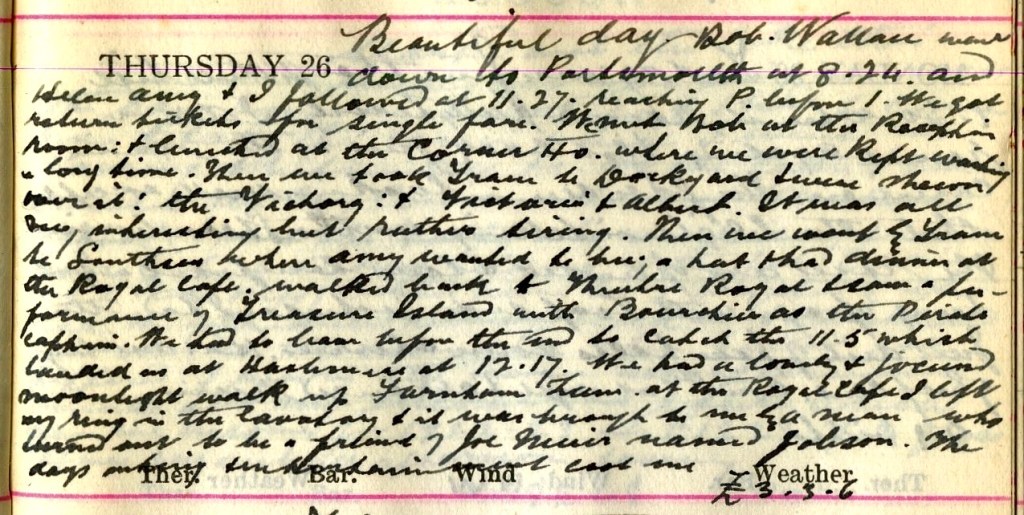 Beautiful day Bob. Wallace went
THURSDAY 26 down to Portsmouth at 8.24 and
Helen Amy & I followed at 11.27. reaching P. before 1. We got
return tickets for single fare. We met Bob at the Reception
room: & lunched at the Corner Ho. where we were kept waiting
a long time. Then we took Tram to Dockyard & were shewn
over it: the Victory: & Victoria & Albert. It was all
very interesting but rather tiring. Then we went by Tram
to Southsea where Amy wanted to buy a hat & had dinner at
the Royal Cafe. walked back to Theatre Royal & saw a per-
formance of Treasure Island with Bourchier as the Pirate
captain. We had to leave before the end to catch the 11.5 which
landed us at Haslemere at 12.17. We had a lovely & jocund
moonlight walk up Farnham Lane. at the Royal Cafe I left
my ring in the lavatory & it was brought to me by a man who
turned out to be a friend of Joe Muir named Jobson. The
days outing cost me
Ther. Bar. Wind Weather
£ 3.3.6